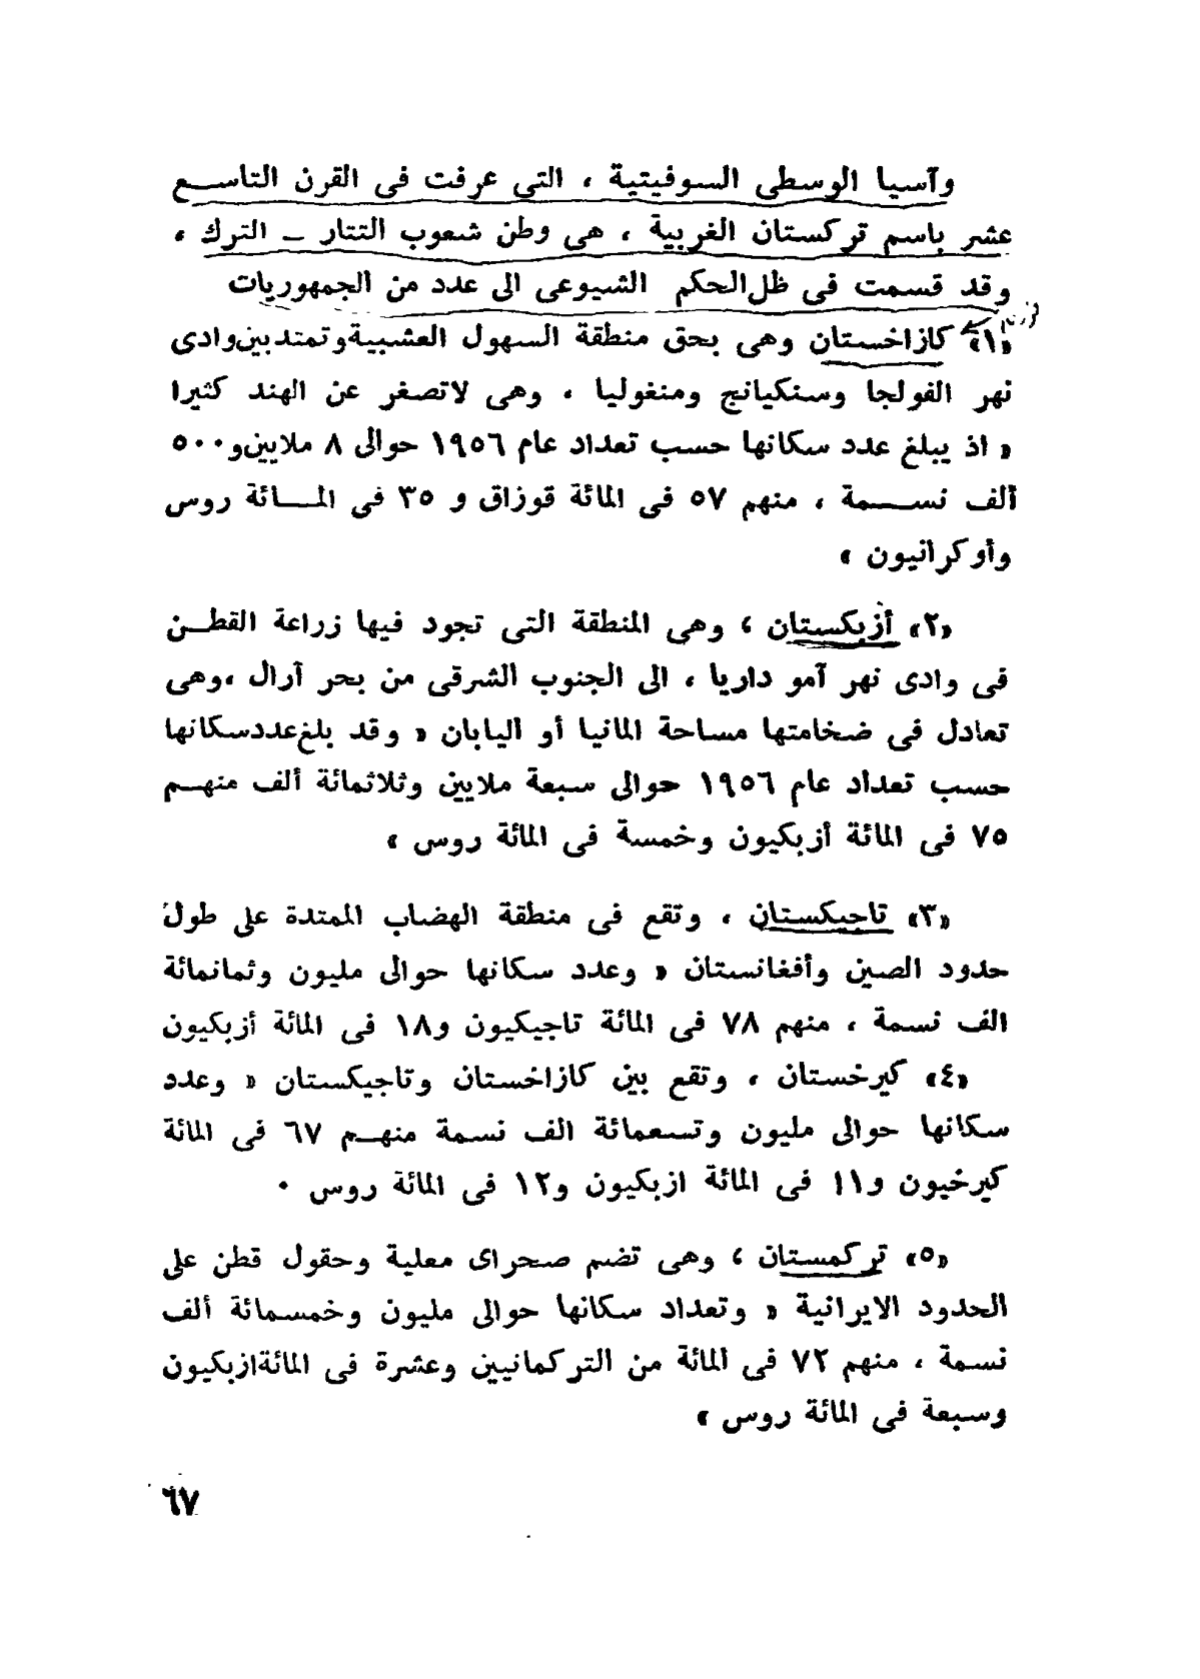 وآسيا الوسطى السوفيتية ، التى عرفت فى القرن التاسـع
عشر باسم تركستان الغربية ، هى وطن شعوب التتار ــ الترك ،
وقد قسمت فى ظل الحكم الشيوعى الى عدد من الجمهوريات
«١» كازاخستان وهى بحق منطقة السهول العشبية وتمتد بين وادى
نهر الفولجا وسنكيانج ومنغوليا ، وهى لاتصغر عن الهند كثيرا
« اذ يبلغ عدد سكانها حسب تعداد عام ١٩٥٦ حوالى ٨ ملايين و٥٠٠
ألف نســـمة ، منهم ٥٧ فى المائة قوزاق و ٣٥ فى المـــائة روس
وأوكرانيون »
«٢» أزبكستان ، وهى المنطقة التى تجود فيها زراعة القطـن
فى وادى نهر آمو داريا ، الى الجنوب الشرقى من بحر آرال ،وهى
تعادل فى ضخامتها مساحة المانيا أو اليابان « وقد بلغ عدد سكانها
حسب تعداد عام ١٩٥٦ حوالى سبعة ملايين وثلاثمائة ألف منهـم
٧٥ فى المائة أزبكيون وخمسة فى المائة روس »
«٣» تاجيكستان ، وتقع فى منطقة الهضاب الممتدة على طول
حدود الصين وأفغانستان « وعدد سكانها حوالى مليون وثمانمائة
الف نسمة ، منهم ٧٨ فى المائة تاجيكيون و١٨ فى المائة أزبكيون
«٤» كيرخستان ، وتقع بين كازاخستان وتاجيكستان « وعدد
سكانها حوالى مليون وتسعمائة الف نسمة منهـم ٦٧ فى المائة
كيرخيون و١١ فى المائة ازبكيون و١٢ فى المائة روس ٠
«٥» تركمستان ، وهى تضم صحراى معلية وحقول قطن على
الحدود الايرانية « وتعداد سكانها حوالى مليون وخمسمائة ألف
نسمة ، منهم ٧٢ فى المائة من التركمانيين وعشرة فى المائة ازبكيون
وسبعة فى المائة روس »
٦٧